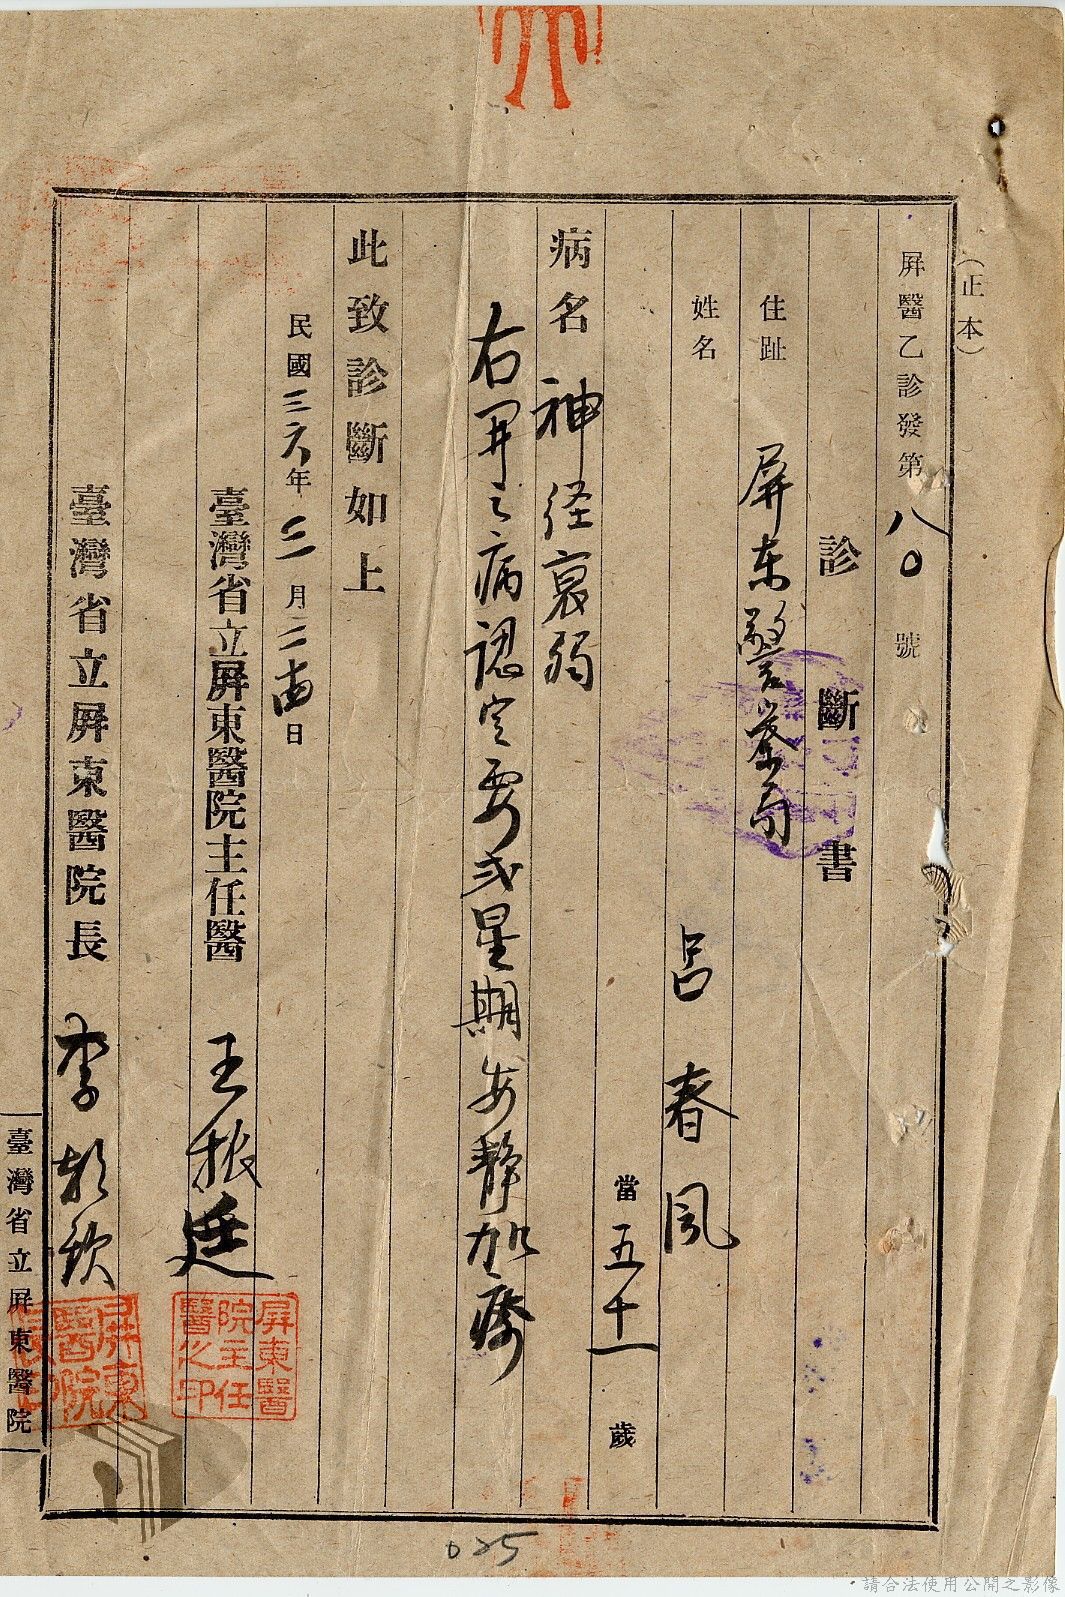 （正本）
屏醫乙診發第八〇號
診斷書
住趾　屏东警察局
姓名　呂春風
當五十一歲
病名　神経衰弱
右開之病認定要弍星期安靜加療
此致診斷如上
民國三六年三月二十日
臺灣省立屏東醫院主任醫　王振廷
屏東醫院主任醫之印
臺灣省立屏東醫院長　李
屏東醫院長印
臺灣省立屏東醫院
025
請合法使用公開之影像